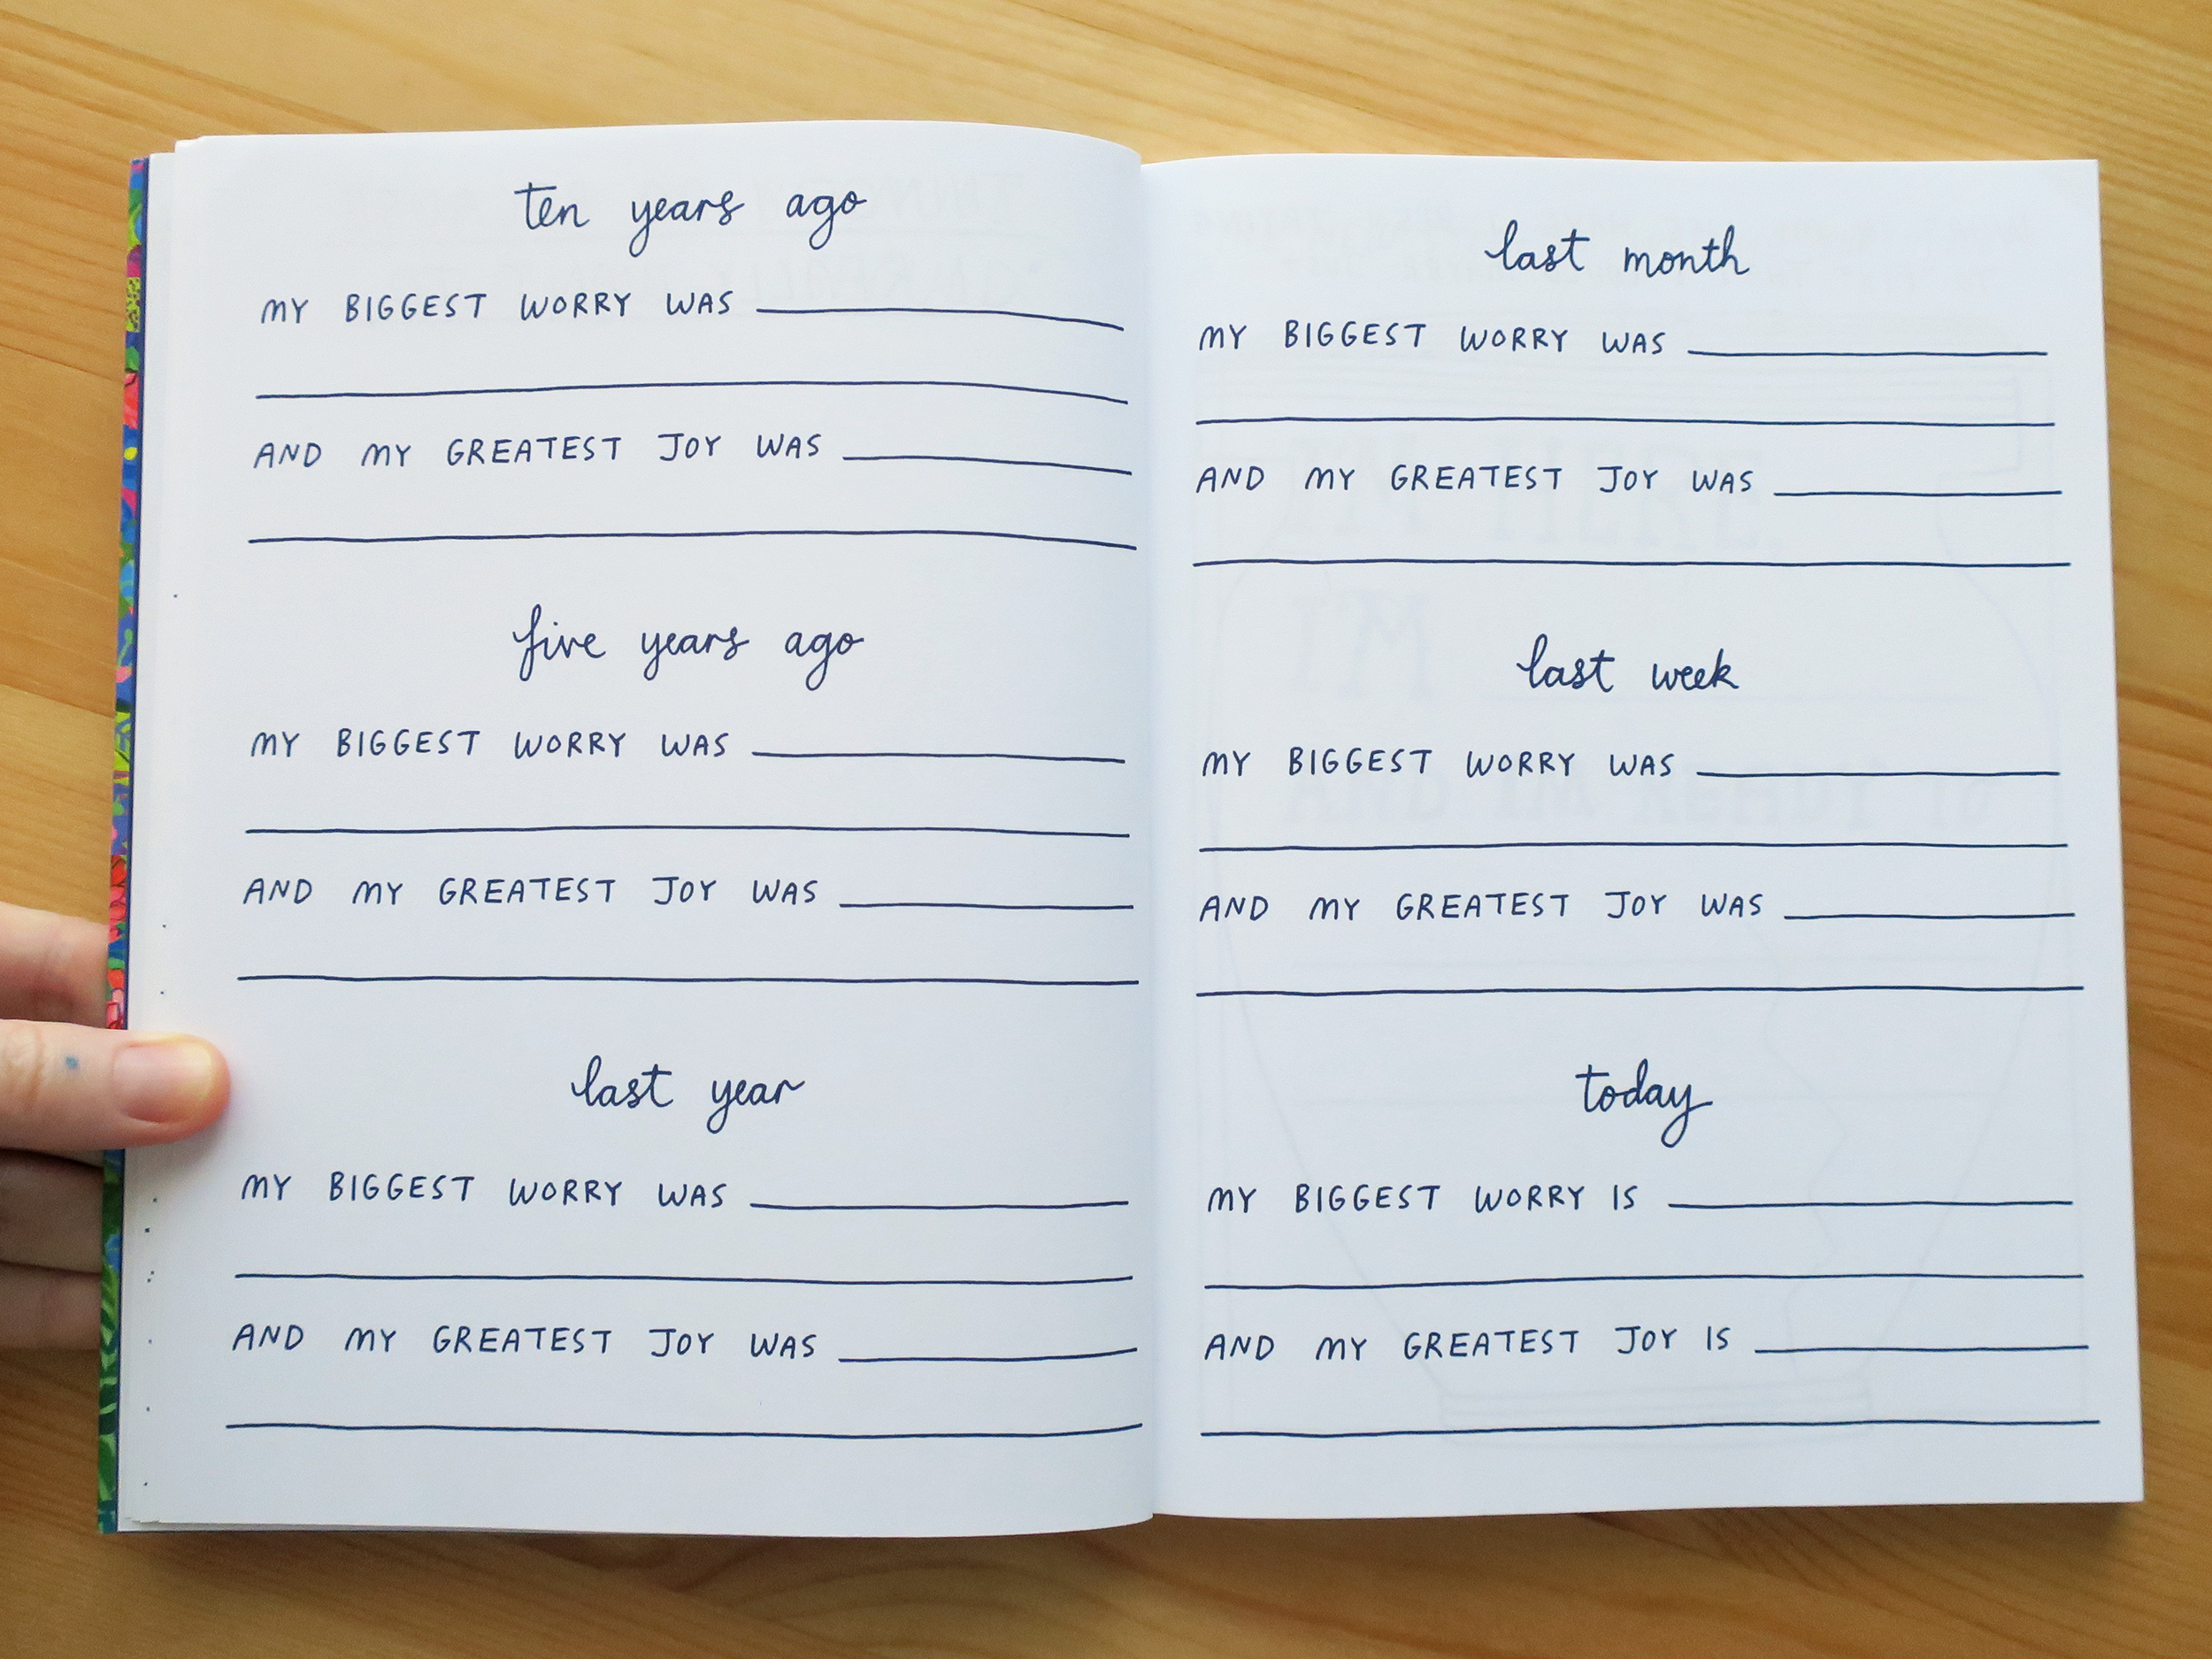 ten years ago
MY BIGGEST WORRY WAS
AND MY GREATEST JOY WAS
five years ago
MY BIGGEST WORRY WAS
AND MY GREATEST JOY WAS
last year
MY BIGGEST WORRY WAS
AND MY GREATEST JOY WAS
last month
MY BIGGEST WORRY WAS
AND MY GREATEST JOY WAS
last week
MY BIGGEST WORRY WAS
AND MY GREATEST JOY WAS
today
MY BIGGEST WORRY IS
AND MY GREATEST JOY IS